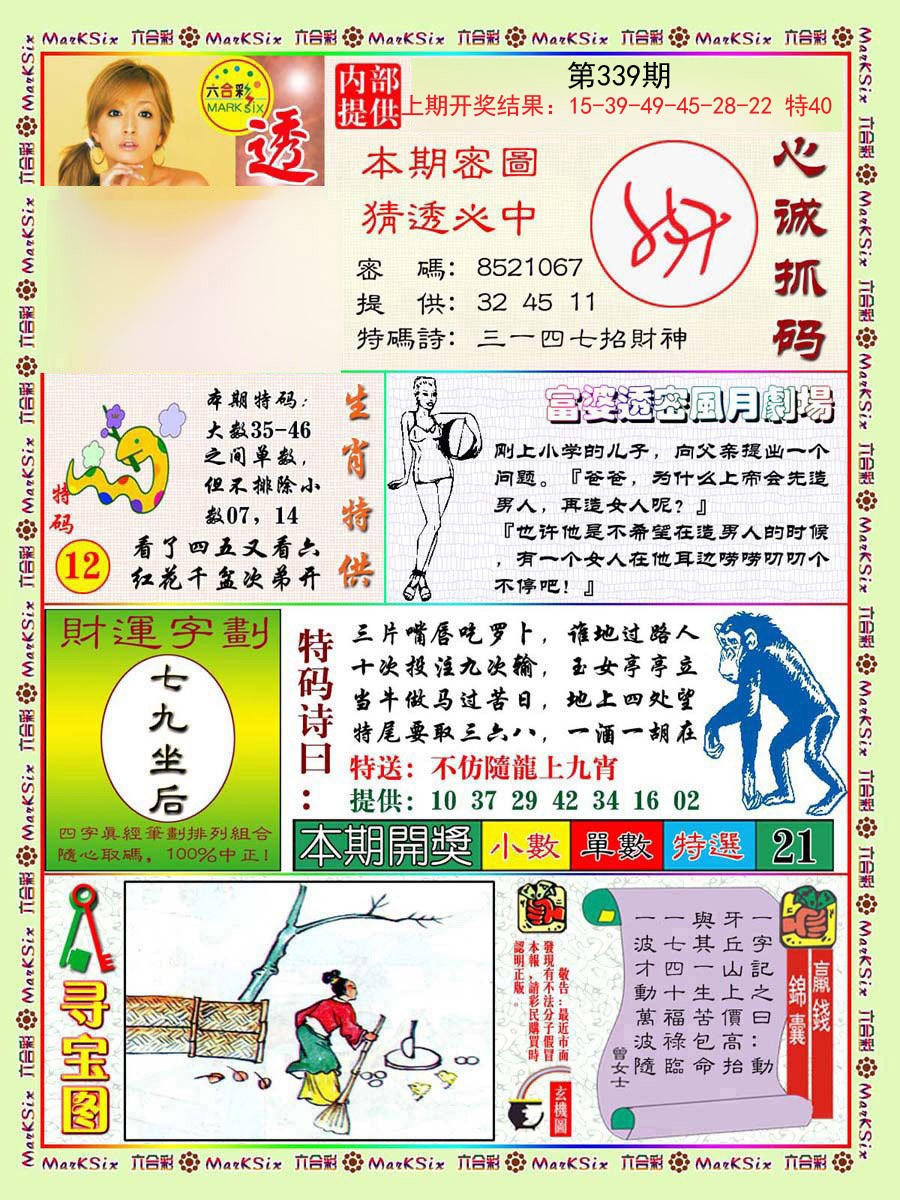 MarKSix 六合彩 MarKSix 六合彩 MarKSix 六合彩 MarKSix 六合彩 MarKSix 六合彩
六合彩
MARK SIX
透
内部
提供
第339期
上期开奖结果：15-39-49-45-28-22 特40
本期密圖
猜透必中
密　碼：8521067
提　供：32 45 11
特碼詩：三一四七招財神
心诚抓码
本期特码：
大数35-46
之间单数，
但不排除小
数07，14
特码
12
看了四五又看六
红花千盆次弟开
生肖特供
富婆透密風月劇場
刚上小学的儿子，向父亲提出一个
问题。『爸爸，为什么上帝会先造
男人，再造女人呢？』
『也许他是不希望在造男人的时候
，有一个女人在他耳边唠唠叨叨个
不停吧！』
財運字劃
七九坐后
四字真經筆劃排列組合
隨心取碼，100%中正！
特码诗曰：
三片嘴唇吃罗卜，谁地过路人
十次投注九次输，玉女亭亭立
当牛做马过苦日，地上四处望
特尾要取三六八，一酒一胡在
特送：不仿隨龍上九宵
提供：10 37 29 42 34 16 02
本期開獎 小數 單數 特選 21
寻宝图
敬告：最近市面
發現有不法分子假冒
本報，請彩民購買時
認明正版。
玄機圖
贏錢
錦囊
一字記之曰：動
牙丘山上價高抬
與其一生苦包命
一七四十福祿臨
一波才動萬波隨
曾女士
MarKSix 六合彩 MarKSix 六合彩 MarKSix 六合彩 MarKSix 六合彩 MarKSix 六合彩